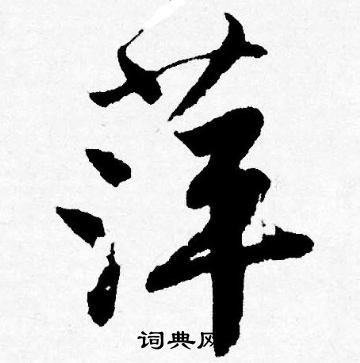 萍
词典网